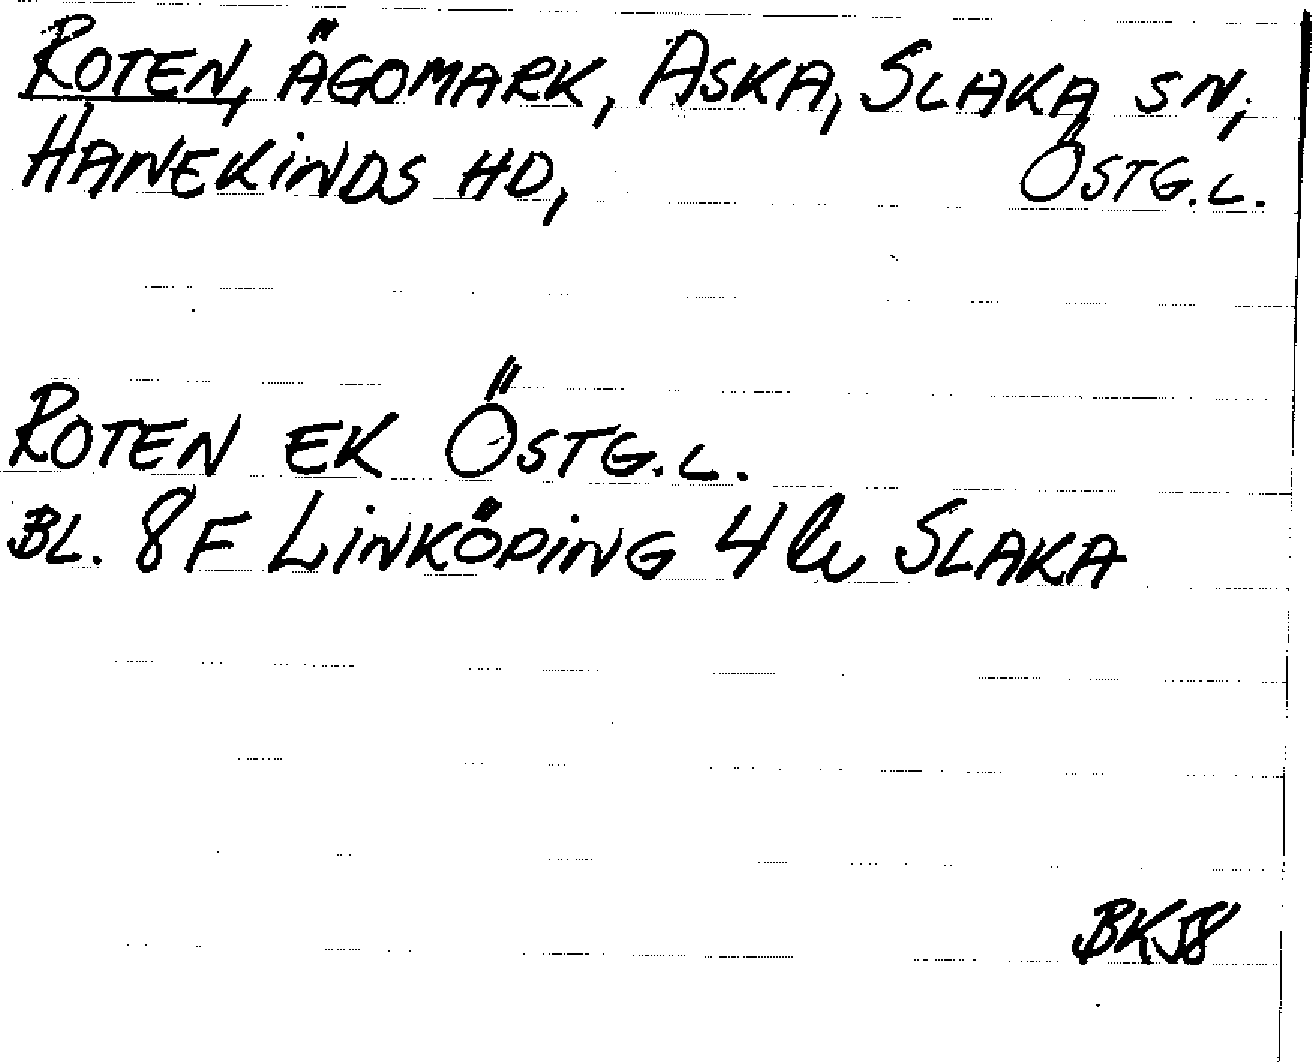 ROTEN, ÄGOMARK, ASKA, SLAKA SN,
HANEKINDS HD, ÖSTG.L.
ROTEN EK ÖSTG.L.
BL. 8F LINKÖPING 4 lu SLAKA
BK58